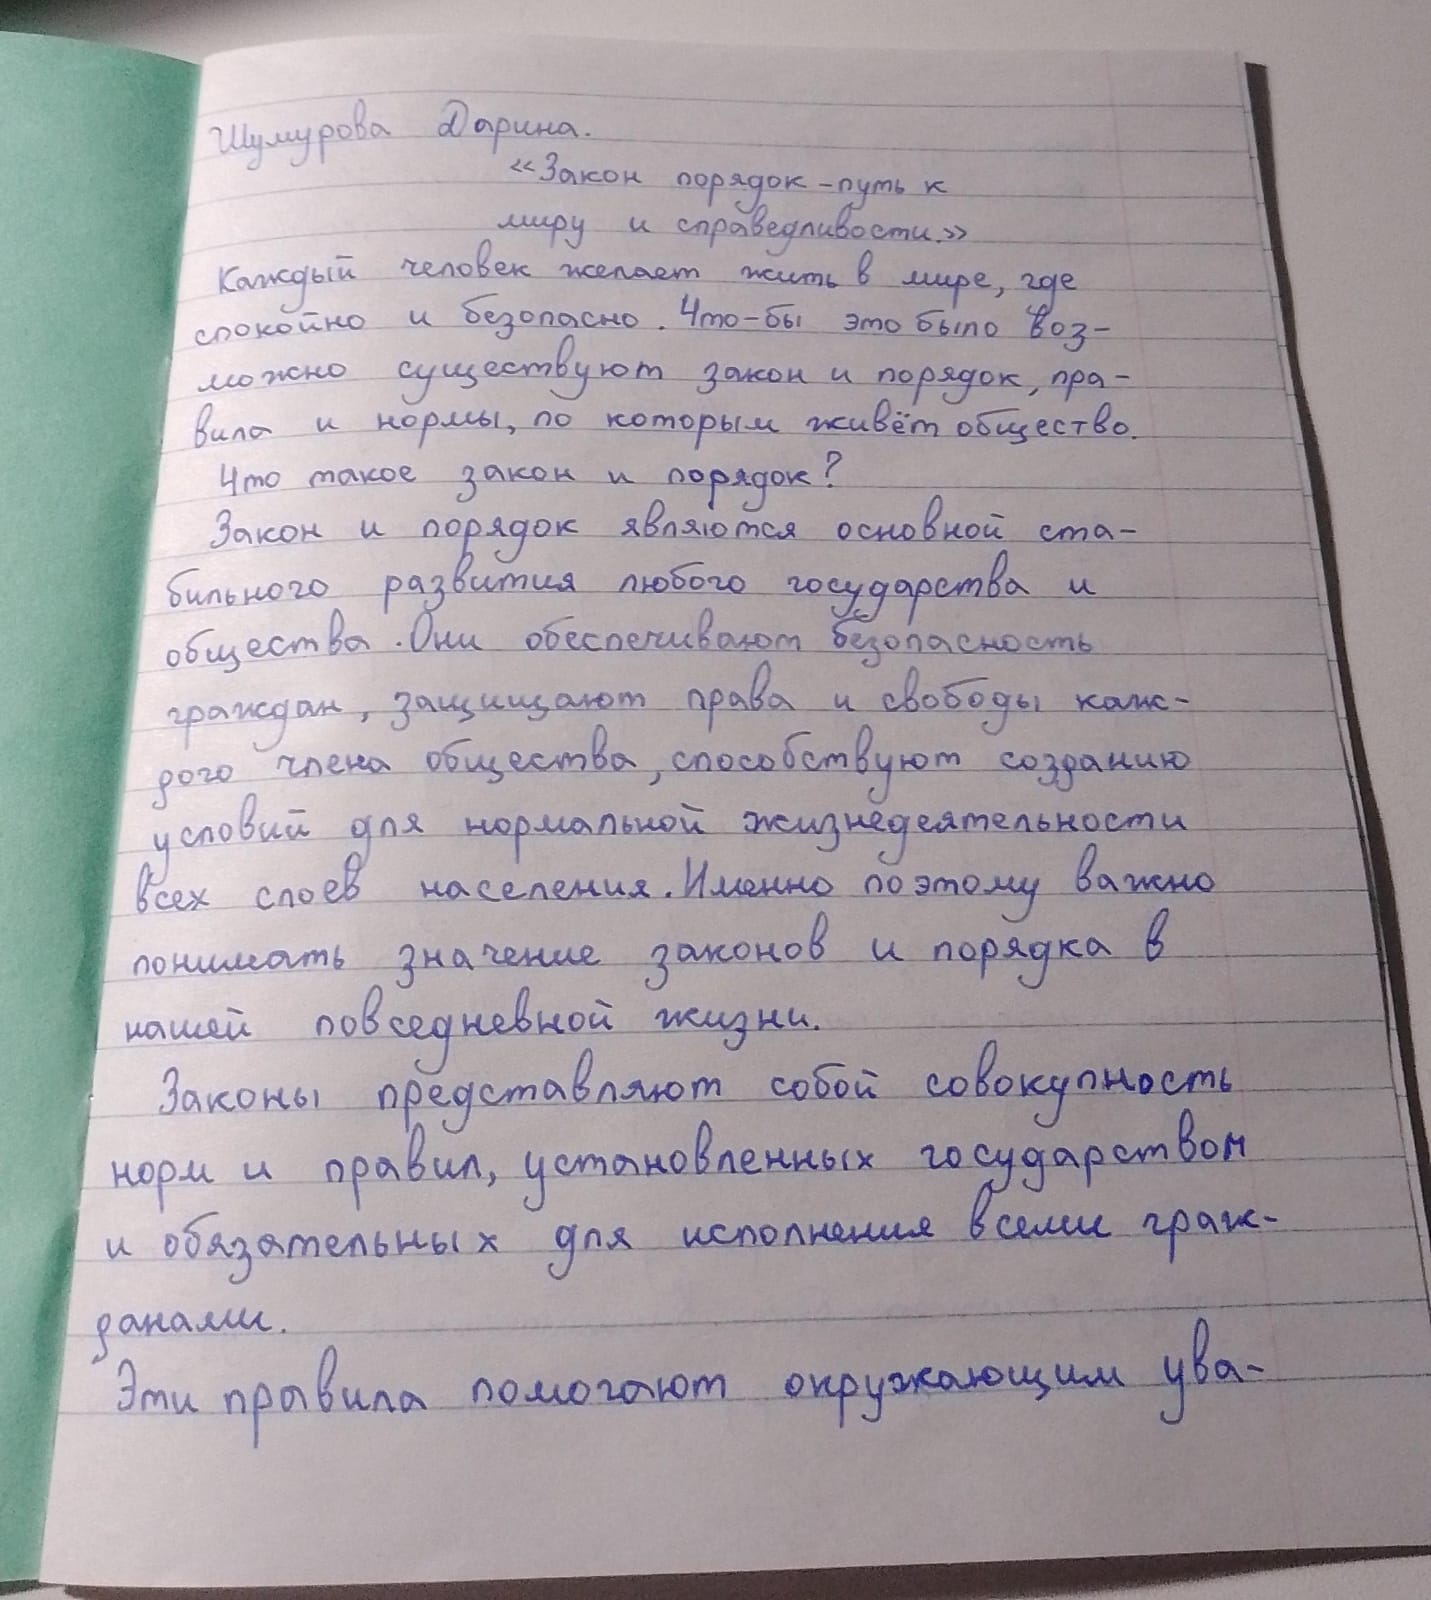 Шумурова Дарина.
«Закон порядок – путь к
миру и справедливости.»
Каждый человек желает жить в мире, где
спокойно и безопасно. Что-бы это было воз-
можно существуют закон и порядок, пра-
вила и нормы, по которым живёт общество.
Что такое закон и порядок?
Закон и порядок являются основной ста-
бильного развития любого государства и
общества. Они обеспечивают безопасность
граждан, защищают права и свободы каж-
дого члена общества, способствуют созданию
условий для нормальной жизнедеятельности
всех слоев населения. Именно поэтому важно
понимать значение законов и порядка в
нашей повседневной жизни.
Законы представляют собой совокупность
норм и правил, установленных государством
и обязательных для исполнения всеми граж-
данами.
Эти правила помогают окружающим ува-